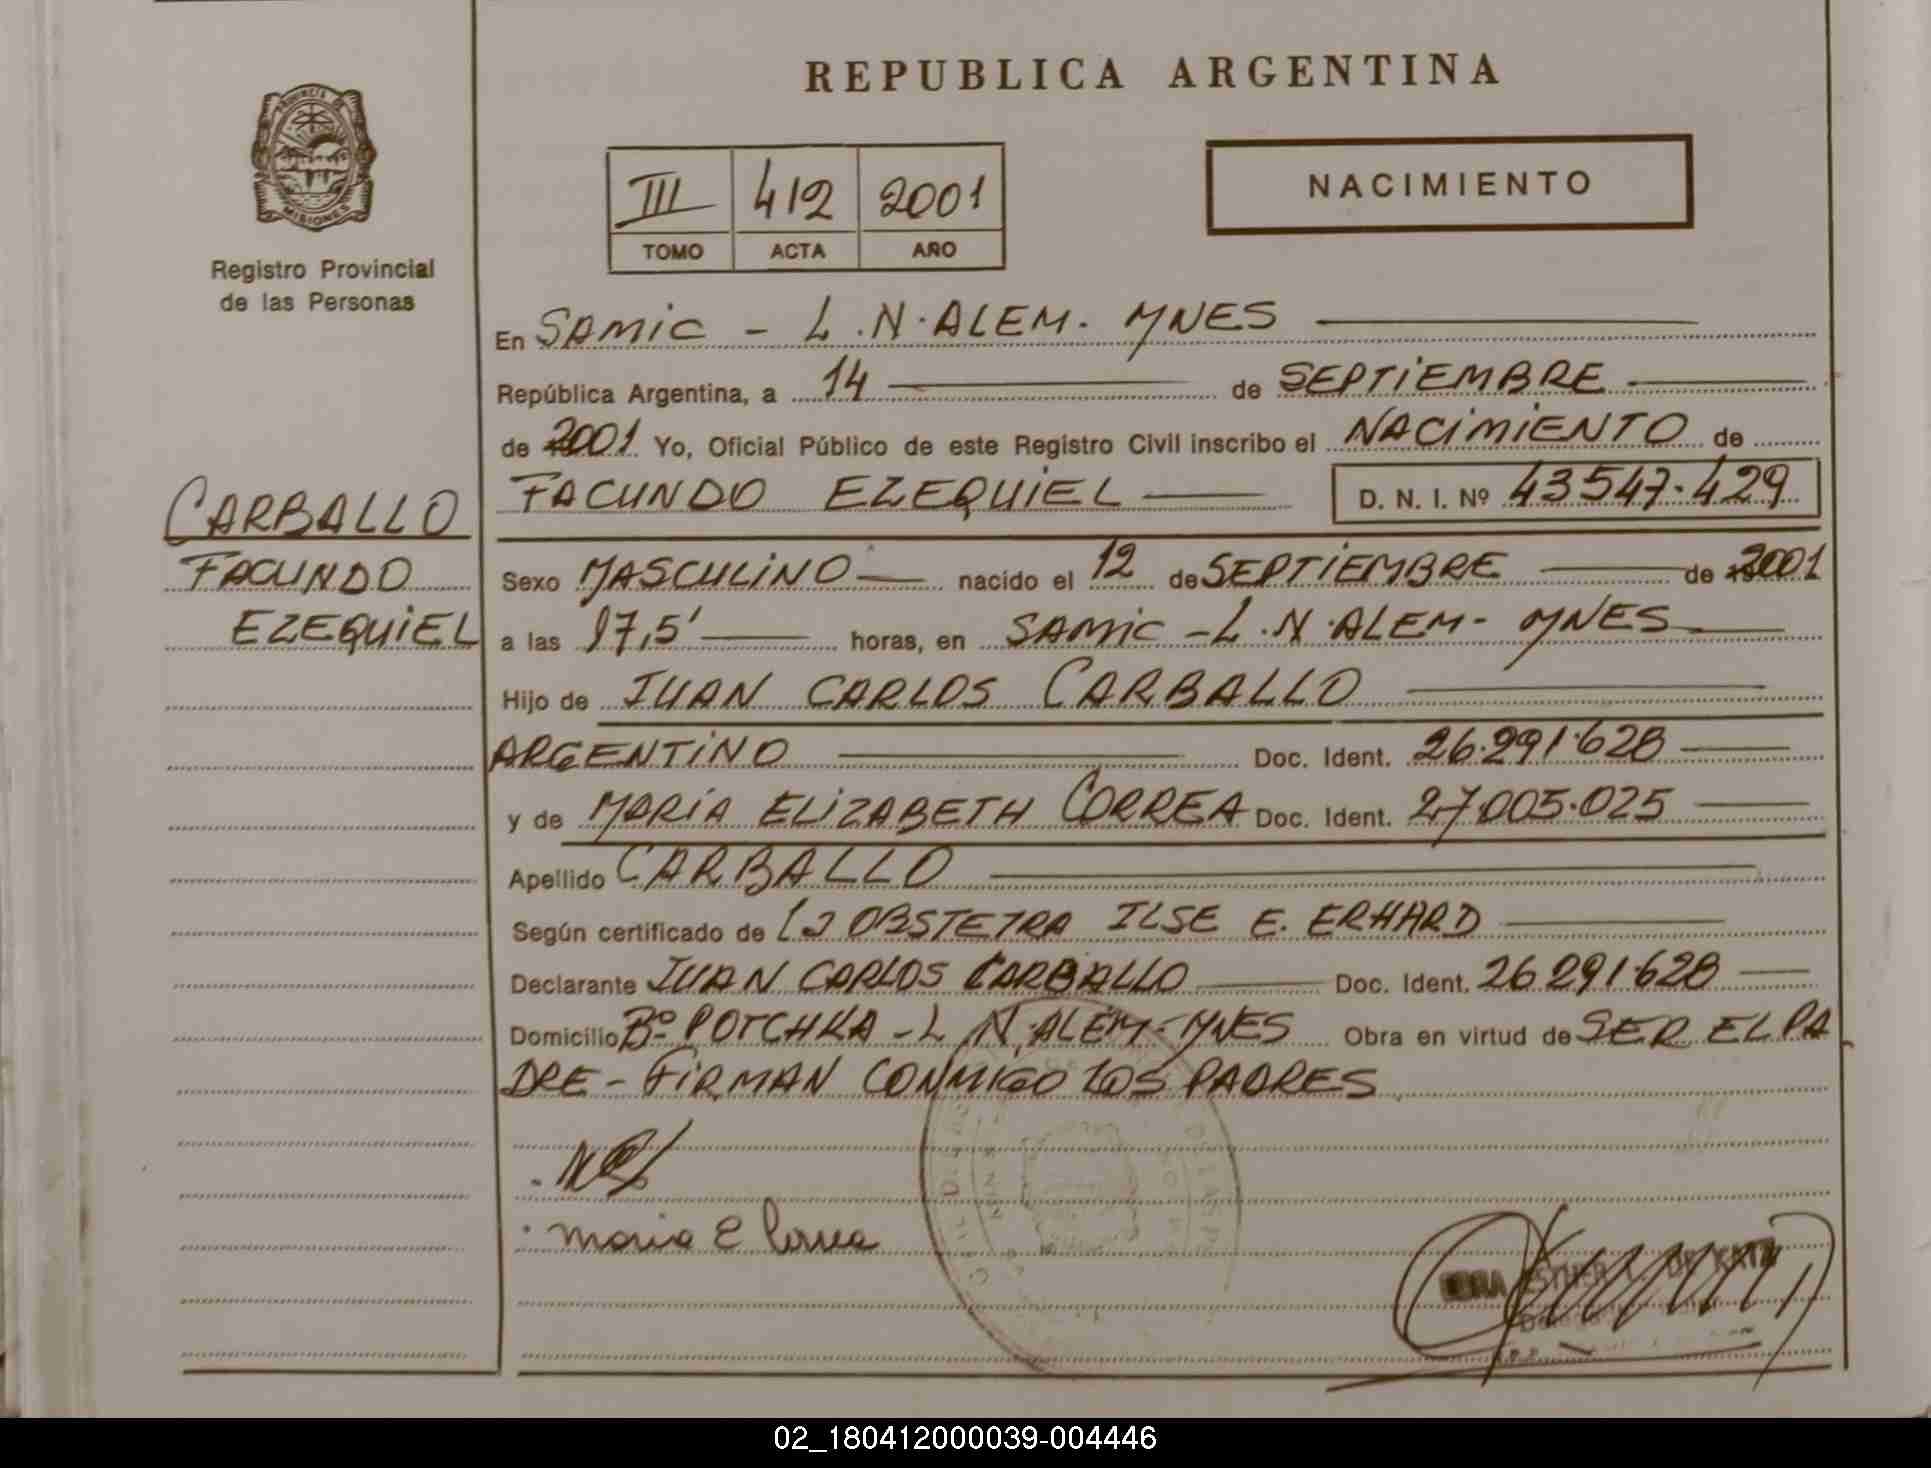 REPUBLICA ARGENTINA
PROVINCIA DE
MISIONES
Registro Provincial
de las Personas
III 412 2001
TOMO ACTA AÑO
NACIMIENTO
En SAMIC - L.N.ALEM. MNES
República Argentina, a 14 de SEPTIEMBRE
de 2001 Yo, Oficial Público de este Registro Civil inscribo el NACIMIENTO de
FACUNDO EZEQUIEL D. N. I. Nº 43547.429
CARBALLO
FACUNDO
EZEQUIEL
Sexo MASCULINO nacido el 12 de SEPTIEMBRE de 2001
a las 17,5' horas, en SAMIC - L.N.ALEM - MNES
Hijo de JUAN CARLOS CARBALLO
ARGENTINO Doc. Ident. 26.291.628
y de MARÍA ELIZABETH CORREA Doc. Ident. 27.005.025
Apellido CARBALLO
Según certificado de OBSTETRA ILSE E. ERHARD
Declarante JUAN CARLOS CARBALLO Doc. Ident. 26291.628
Domicilio Bº POTCHKA - L.N.ALEM - MNES Obra en virtud de SER EL PA
DRE - FIRMAN CONMIGO LOS PADRES
Maria E Correa
ESTHER
02_180412000039-004446